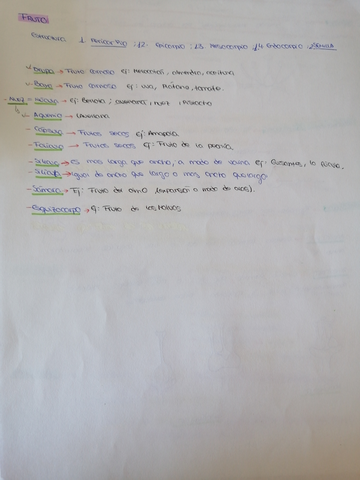 FRUTO
Estructura 1. Pericarpio : 1.2. Epicarpio ; 1.3 Mesocarpio ; 1.4 Endocarpio
Drupa → Fruto carnoso ej: Melocotón,
Baya → Fruto carnoso ej: uva, Plátano, tomate.
Nuez → Ej: Bellota ; avellana, nuez, Pistacho
Aquenio →
- Cápsula → Frutos secos ej: Amapola
- Folículo → Frutos secos ej: Fruto de la peonía.
- Silicua → es más larga que ancha, a modo de vaina Ej:
- Silícula → igual de ancho que largo o más ancho que largo
- Sámara → Ej: Fruto del olmo (expansión a modo de alas).
- esquizocarpo → ej: Fruto de las Malvas